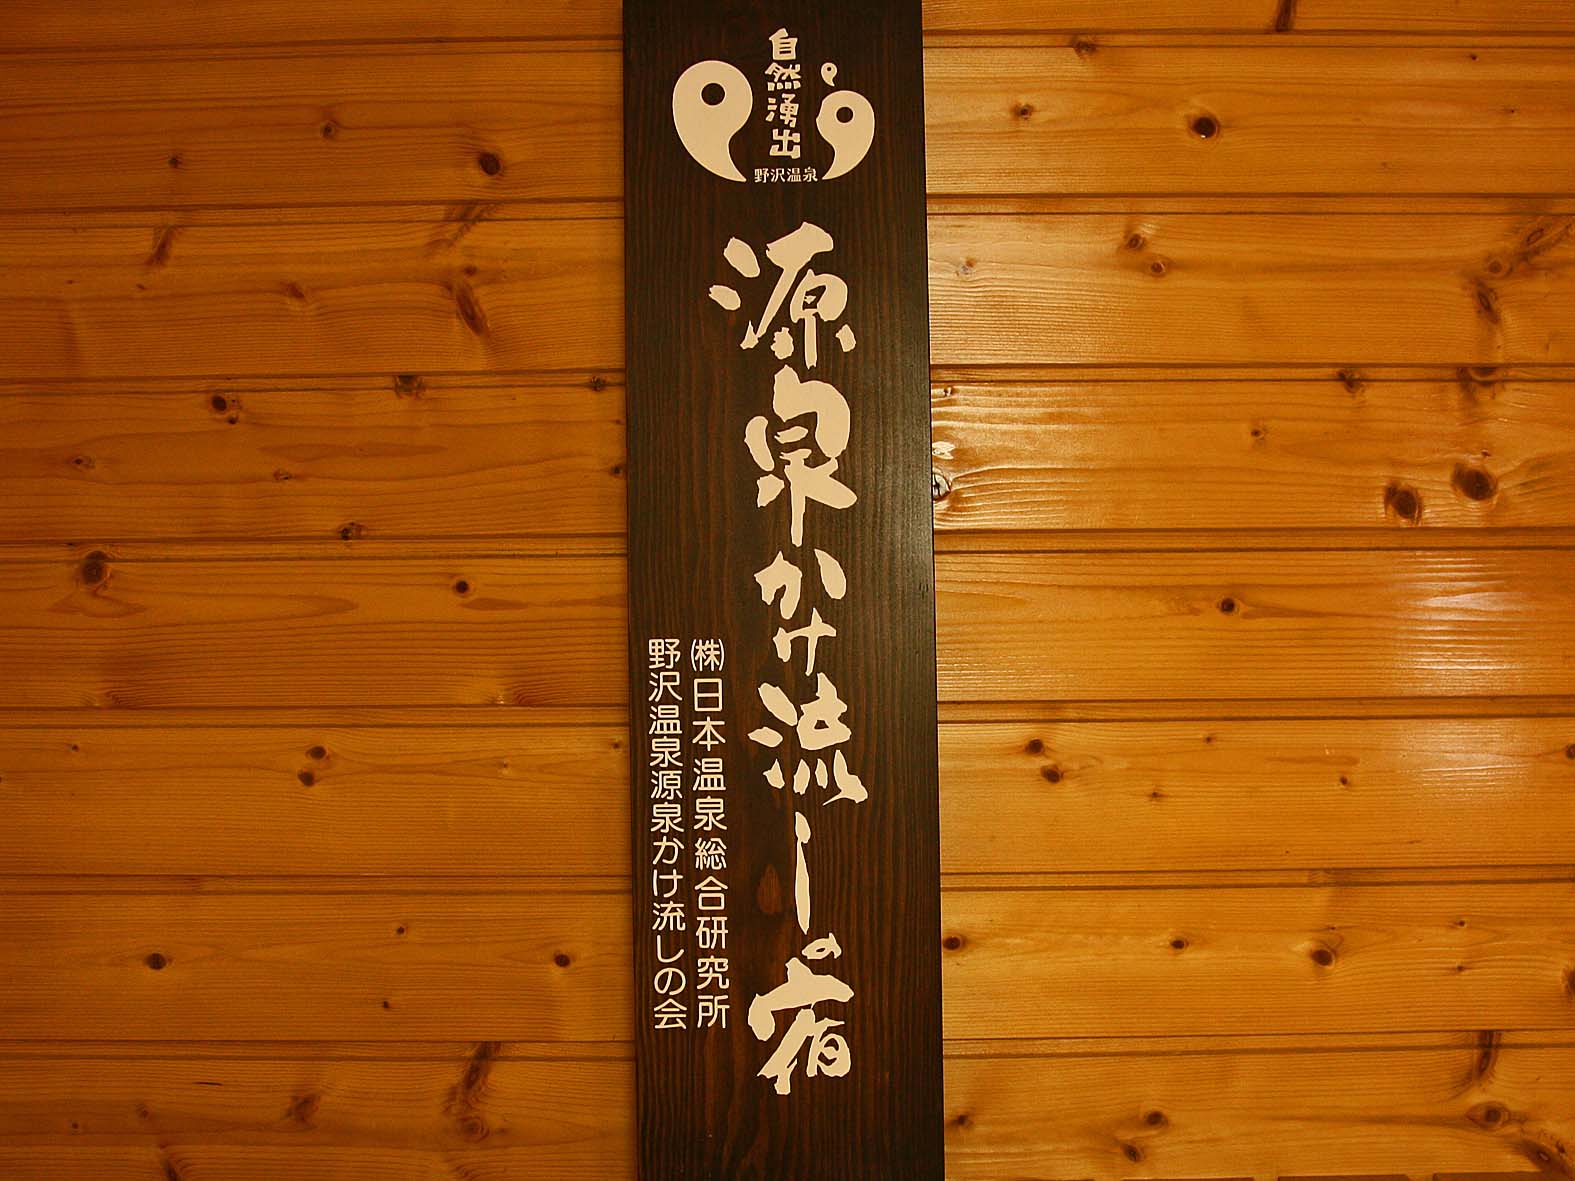 自然湧出
野沢温泉
源泉かけ流しの宿
㈱日本温泉総合研究所
野沢温泉源泉かけ流しの会